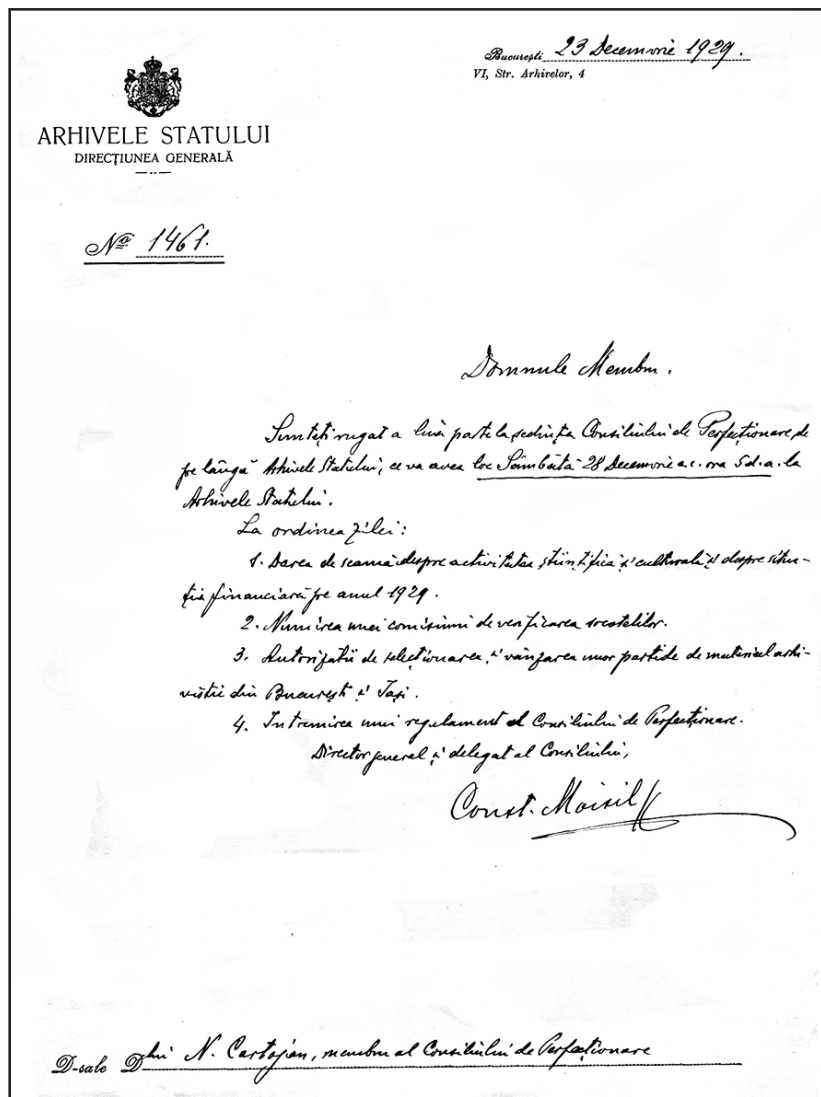 București 23 Decemvrie 1929.
VI, Str. Arhivelor, 4
ARHIVELE STATULUI
DIRECȚIUNEA GENERALĂ
Nº 1461.
Domnule Membru.
Sunteți rugat a lua parte la ședința Consiliului de Perfecționare de
pe lângă Arhivele Statului, ce va avea loc Sâmbătă 28 Decemvrie a.c. ora 5 d.a. la
Arhivele Statului.
La ordinea zilei:
1. Darea de seamă despre activitatea științifică și culturală și despre situa-
ția financiară pe anul 1929.
2. Numirea unei comisiuni de verificarea socotelilor.
3. Autorizații de selecționarea și vânzarea unor partide de material arhi-
vistic din București și Iași.
4. Intocmirea unui regulament al Consiliului de Perfecționare.
Director general și delegat al Consiliului,
Const. Moisil
D-sale Dlui N. Cartojan, membru al Consiliului de Perfecționare